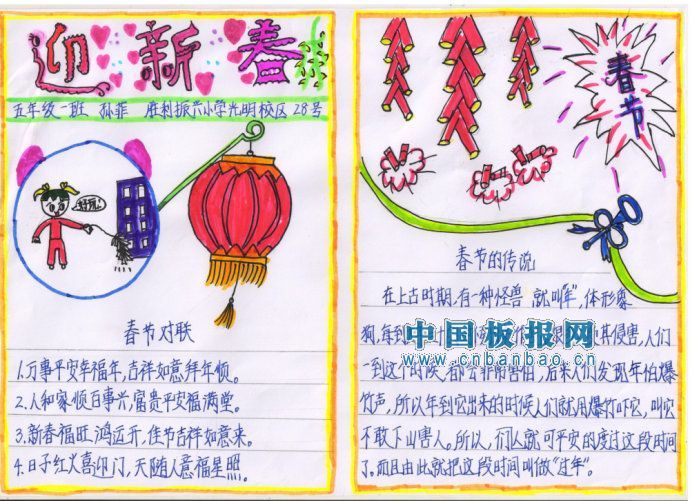 迎新春
五年级一班 孙菲 胜利振兴小学光明校区 28号
好玩!
春节对联
1.万事平安幸福年,吉祥如意拜年顺。
2.人和家顺百事兴,富贵平安福满堂。
3.新春福旺鸿运开,佳节吉祥如意来。
4.日子红火喜迎门,天随人意福星照。
春节
春节的传说
在上古时期,有一种怪兽 就叫"年",体形象
狗,每到 其侵害,人们
一到这个时候,都会非常害怕,后来人们发现年怕爆
竹声,所以年到它出来的时候人们就用爆竹吓它,叫它
不敢下山害人。所以,们么就可平安的度过这段时间
了。而且由此就把这段时间叫做"过年"。
中国板报网
www.cnbanbao.cn